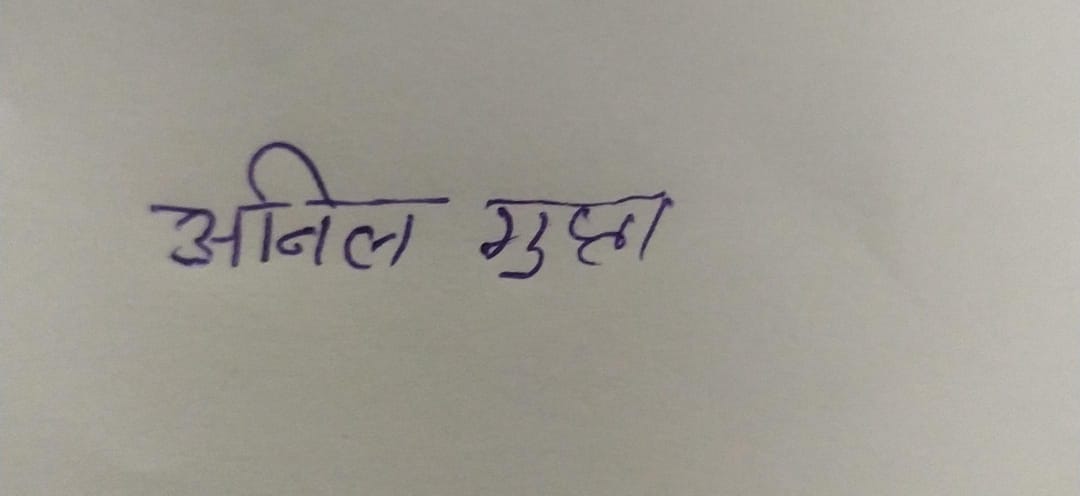 अनिल गुप्ता